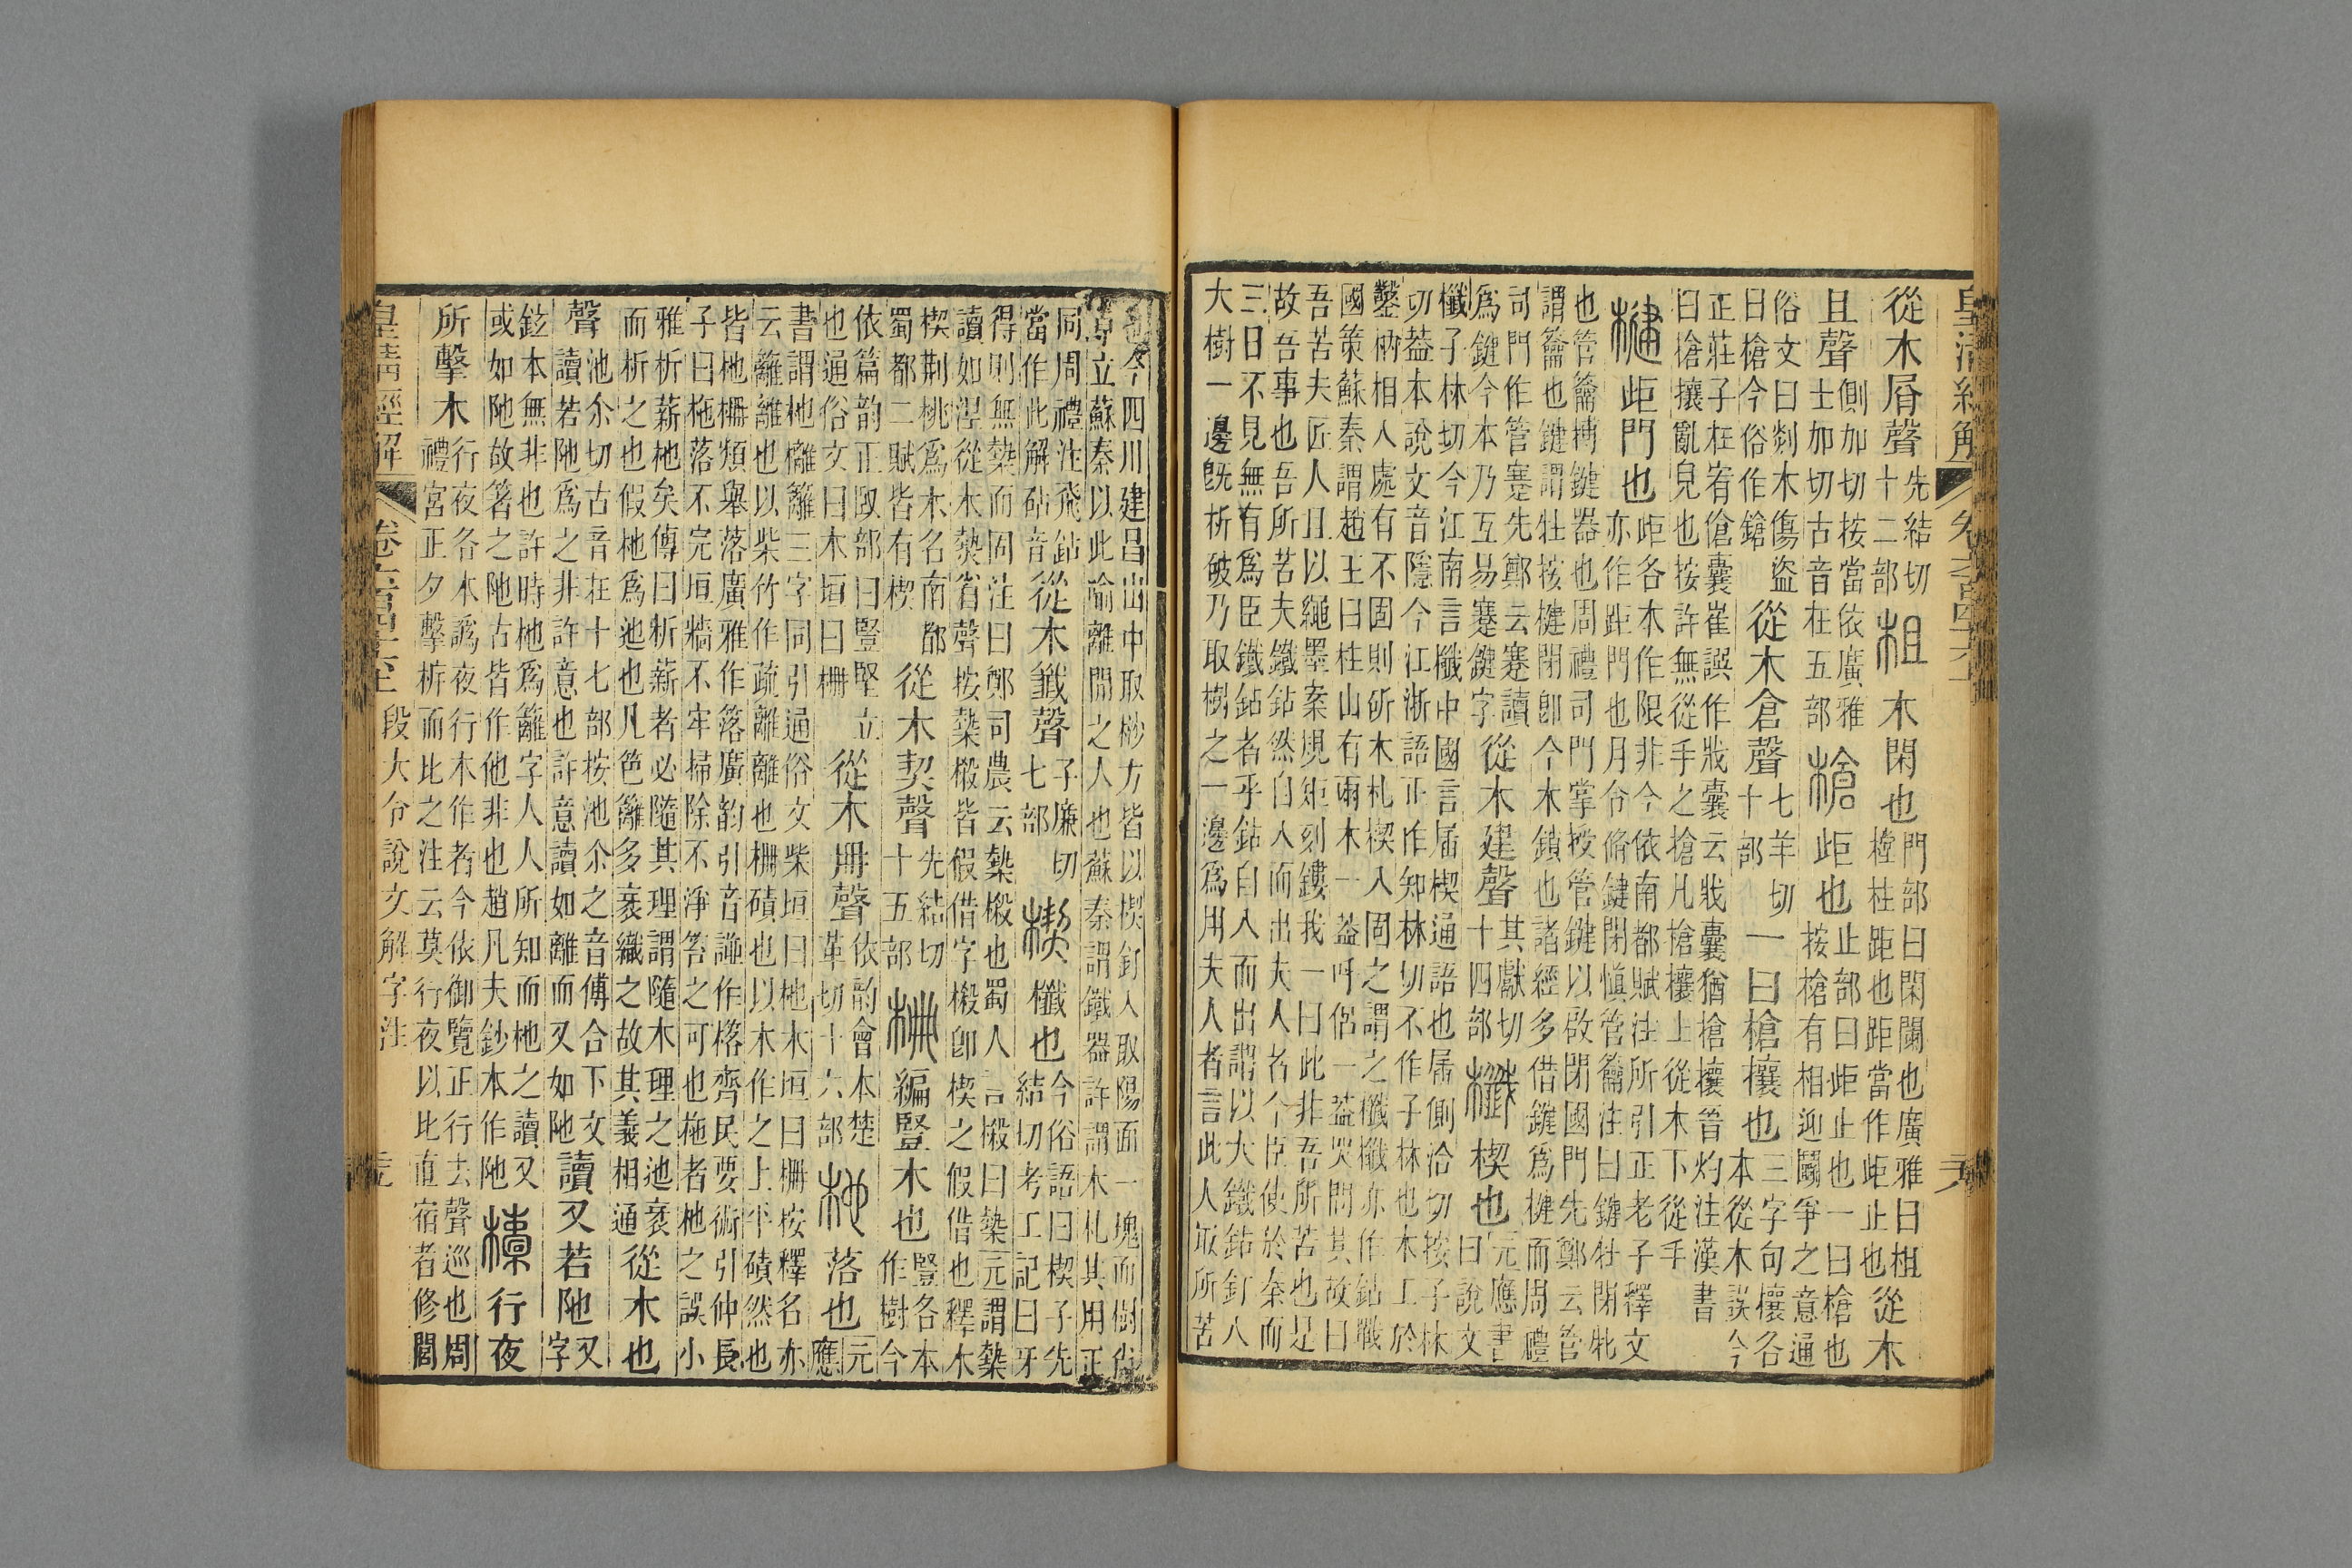 皇清經解
從木屑聲先結切十二部柤木閑也門部曰閑闌也廣雅曰柤樘柱距也距當作歫止也從木
且聲側加切按當依廣雅士加切古音在五部槍歫也止部曰歫止也一曰槍也按槍有相迎鬭爭之意通
俗文曰剡木傷盜曰槍今俗作鎗從木倉聲七羊切十部一曰槍欀也三字句欀各本從木誤今
正莊子在宥傖囊崔譔作戕囊云戕囊猶槍欀晉灼注漢書曰槍攘亂皃也按許無從手之槍凡槍欀上從木下從手
楗歫門也歫各本作限非今依南都賦注所引正老子釋文亦作距門也月令脩鍵閉愼管籥注曰鍵牡閉牝
也管籥搏鍵器也周禮司門掌授管鍵以啟閉國門先鄭云管謂籥也鍵謂牡按楗閉卽今木鎖也諸經多借鍵爲楗而周禮
司門作管蹇先鄭云蹇讀爲鍵今本乃互易蹇鍵字從木建聲其獻切十四部櫼楔也元應書曰說文
櫼子林切今江南言櫼中國言屠楔通語也屠側洽切按子林切葢本說文音隱今江浙語正作知林切不作子林也木工於
鑿枘相入處有不固則斫木札楔入固之謂之櫼櫼亦作鈷戰國策蘇秦謂趙王曰柱山有兩木一葢呼侶一葢哭問其故曰
吾苦夫匠人且以繩墨案規矩刻鏤我一曰此非吾所苦也是故吾事也吾所苦夫鐵鈷然自入而出夫人者今臣使於秦而
三日不見無有爲臣鐵鈷者乎鈷自入而出謂以大鐵鈷釘入大樹一邊旣析破乃取樹之一邊爲用夫人者言此人取所苦
也今四川建昌山中取桫方皆以楔釘入取陽面一塊而樹尙直立蘇秦以此喻離間之人也蘇秦謂鐵器許謂木札其用正
同周禮注飛鈷當作此解鈷音從木韱聲子廉切七部楔櫼也今俗語曰楔子先結切考工記曰牙
得則無槷而固注曰鄭司農云槷榝也蜀人言榝曰槷元謂槷讀如涅從木熱省聲按槷榝皆假借字榝卽楔之假借也釋木
楔荆桃爲木名南都蜀都二賦皆有楔從木契聲先結切十五部柵編豎木也豎各本作樹今
依篇韵正臤部曰豎堅立也通俗文曰木垣曰柵從木册聲依韵會本楚革切十六部杝落也元應
書謂杝櫳籬三字同引通俗文柴垣曰杝木垣曰柵按釋名亦云籬離也以柴竹作疏離離也柵磧也以木作之上平磧然也
皆杝柵類舉落廣雅作落廣韵引音謎作㭝齊民要術引仲長子曰柂落不完垣牆不牢掃除不淨笞之可也柂者杝之誤小
雅析薪杝矣傳曰析薪者必隨其理謂隨木理之迆衺而析之也假杝爲迆也凡笆籬多衺織之故其義相通從木也
聲池尒切古音在十七部按池尒之音傅合下文讀若阤爲之非許意也許意讀如離而又如阤讀又若阤又字
鉉本無非也許時杝爲籬字人人所知而杝之讀又或如阤故箸之阤古皆作他非也趙凡夫鈔本作阤㯓行夜
所擊木行夜各本譌夜行木作者今依御覽正行去聲巡也周禮宮正夕擊㭊而比之注云莫行夜以比直宿者修閭
皇清經解 段大令說文解字注